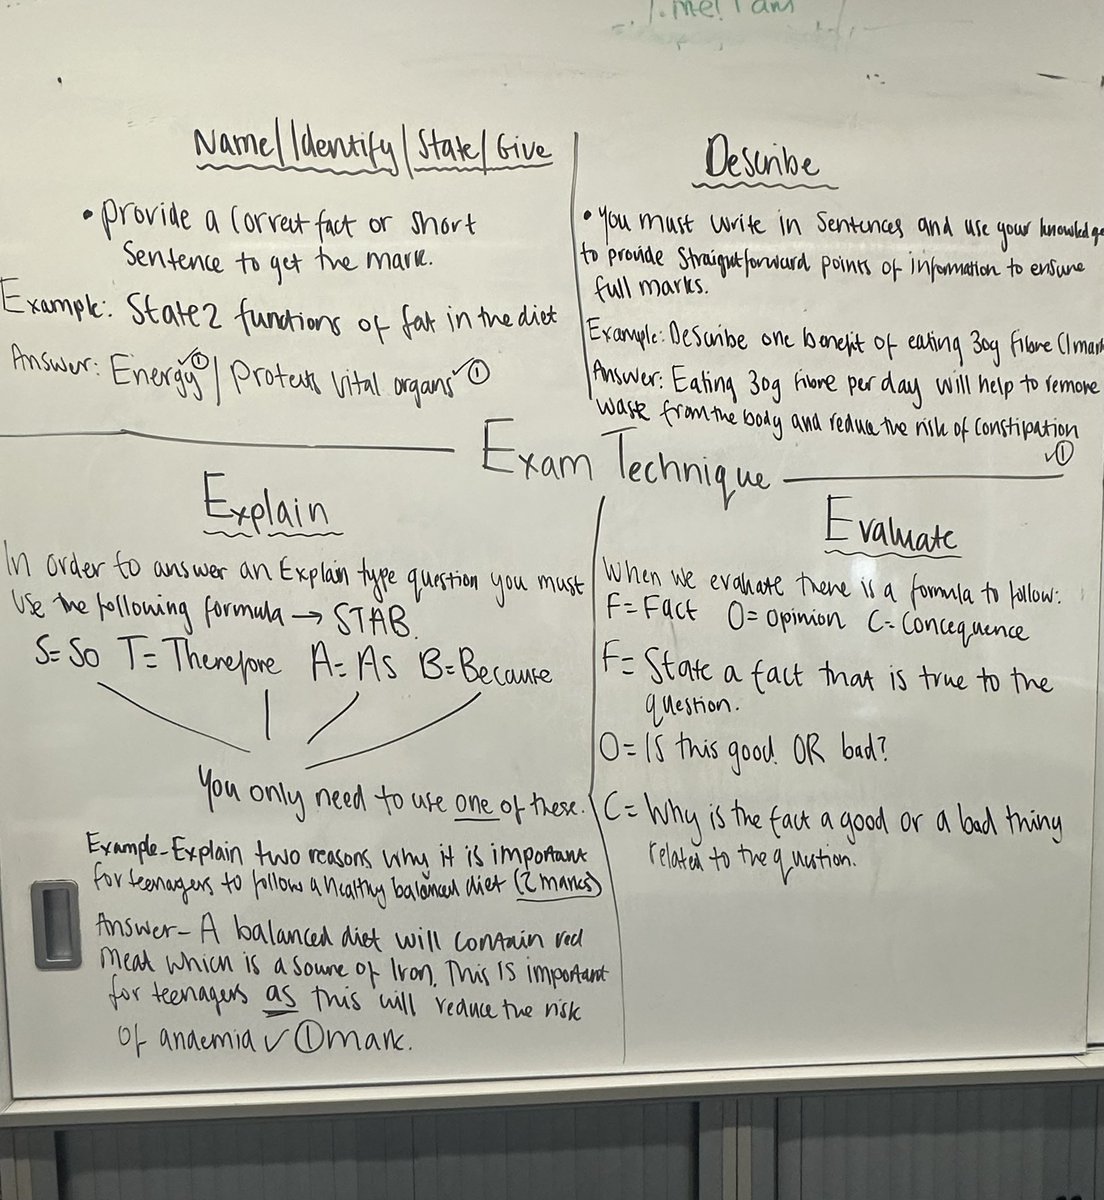 1. mel 1 am
Name/Identify/State/Give
• Provide a correct fact or short
sentence to get the mark.
Example: State 2 functions of fat in the diet
Answer: Energy ✓① / Protects vital organs ✓①
Describe
• You must write in sentences and use your knowledge
to provide straightforward points of information to ensure
full marks.
Example: Describe one benefit of eating 30g fibre (1 mark
Answer: Eating 30g fibre per day will help to remove
waste from the body and reduce the risk of constipation
✓①
Exam Technique
Explain
In order to answer an Explain type question you must
use the following formula → STAB.
S=So T=Therefore A=As B=Because
You only need to use one of these.
Example-Explain two reasons why it is important
for teenagers to follow a healthy balanced diet (2 marks)
Answer- A balanced diet will contain red
meat which is a source of Iron. This is important
for teenagers as this will reduce the risk
of anaemia ✓ ① mark.
Evaluate
When we evaluate there is a formula to follow:
F=Fact O=opinion C=Concequence
F= State a fact that is true to the
question.
O= Is this good OR bad?
C= Why is the fact a good or a bad thing
related to the question.